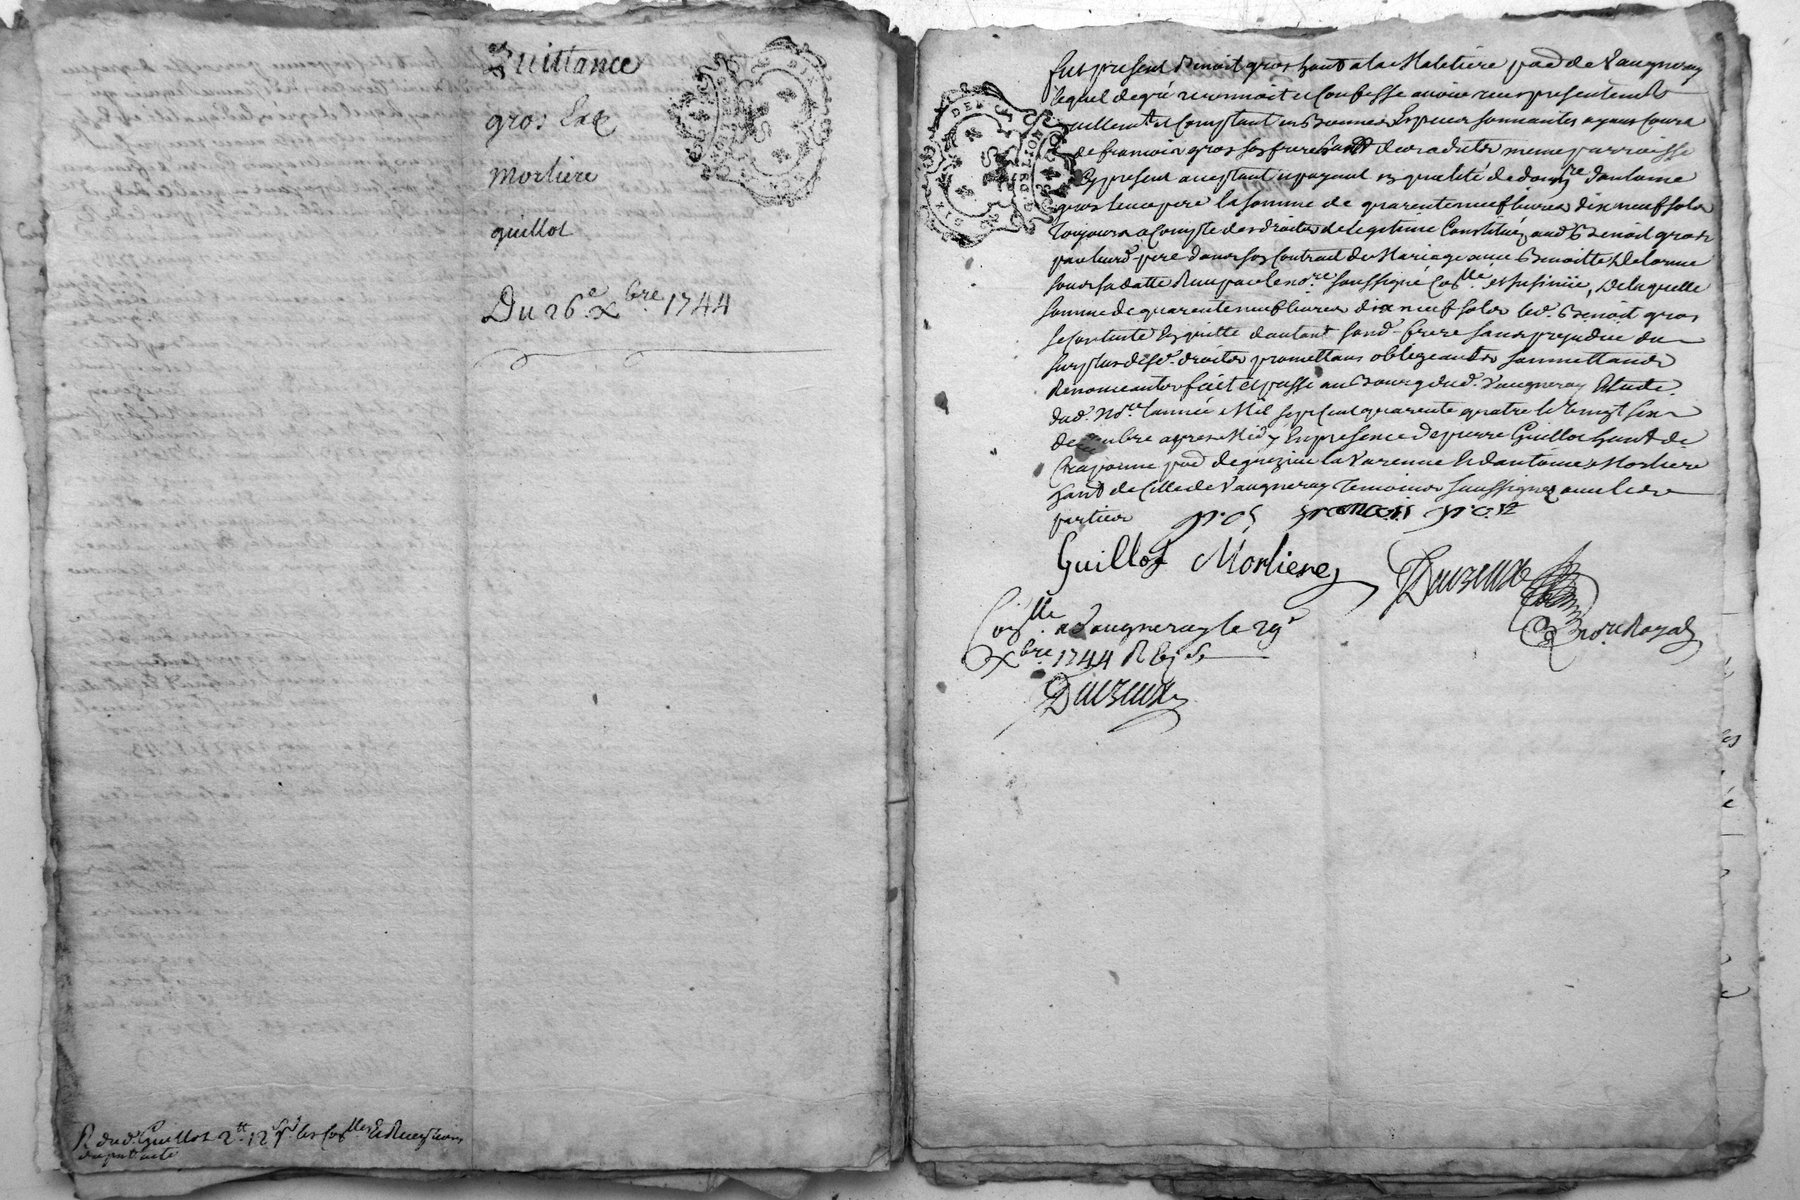 Quittance
gros &
morliere
guillot
Du 26e xbre 1744
R dud. Guillot 2tt 12s
fut present Benoit gros hant a la Maletiere parr de Vaugneray
lequel de gré reconnoit et Confesse avoir receu presentement
reellemt et Comptant en bonnes Especes sonnantes ayans Cours
de francois gros son frere hant meme parroisse
Cy present acceptant et payant en qualité de donre d'antoine
gros leur pere la somme de quarente neuf livres dix neuf sols
toujours a Compte des droits de legitime Constitués aud Benoit gros
par leurd. pere dans son Contract de Mariage avec Benoitte Delorme
sous sa datte Receu par le nore soussigné Conlle et insinué, De laquelle
somme de quarente neuf livres dix neuf sols led. Benoit gros
se contente En quitte d'autant sond. frere sans prejudice du
surplus desd. droits promettans obligeants soumettans
Renonceants fait et passé au Bourg dud. Vaugneray Etude
dud. Nore l'année Mil sept Cent quarente quatre le vingt six
decembre apres Midy En presence de pierre Guillot hant de
Craponne parr de grezieu la Varenne Et d'antoine Morliere
hant de Ville de Vaugneray temoins soussignez avec lesd.
parties
gros francois gros
Guillot Morliere
nore Royal
Conlle a Vaugneray le 29e
xbre 1744 R